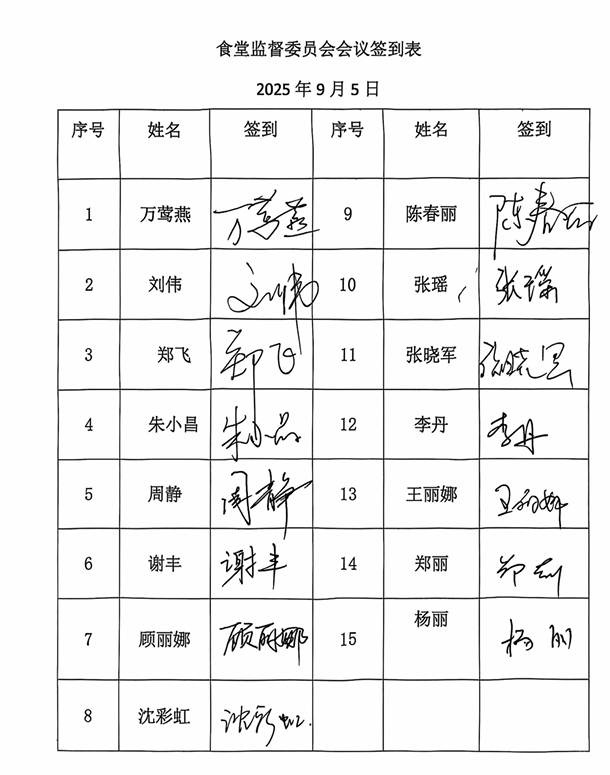 食堂监督委员会会议签到表
2025 年 9 月 5 日
序号 姓名 签到 序号 姓名 签到
1 万莺燕 万莺燕 9 陈春丽 陈春丽
2 刘伟 刘伟 10 张瑶 张瑶
3 郑飞 郑飞 11 张晓军 张晓军
4 朱小昌 朱小昌 12 李丹 李丹
5 周静 周静 13 王丽娜 王丽娜
6 谢丰 谢丰 14 郑丽 郑丽
7 顾丽娜 顾丽娜 15 杨丽 杨丽
8 沈彩虹 沈彩虹